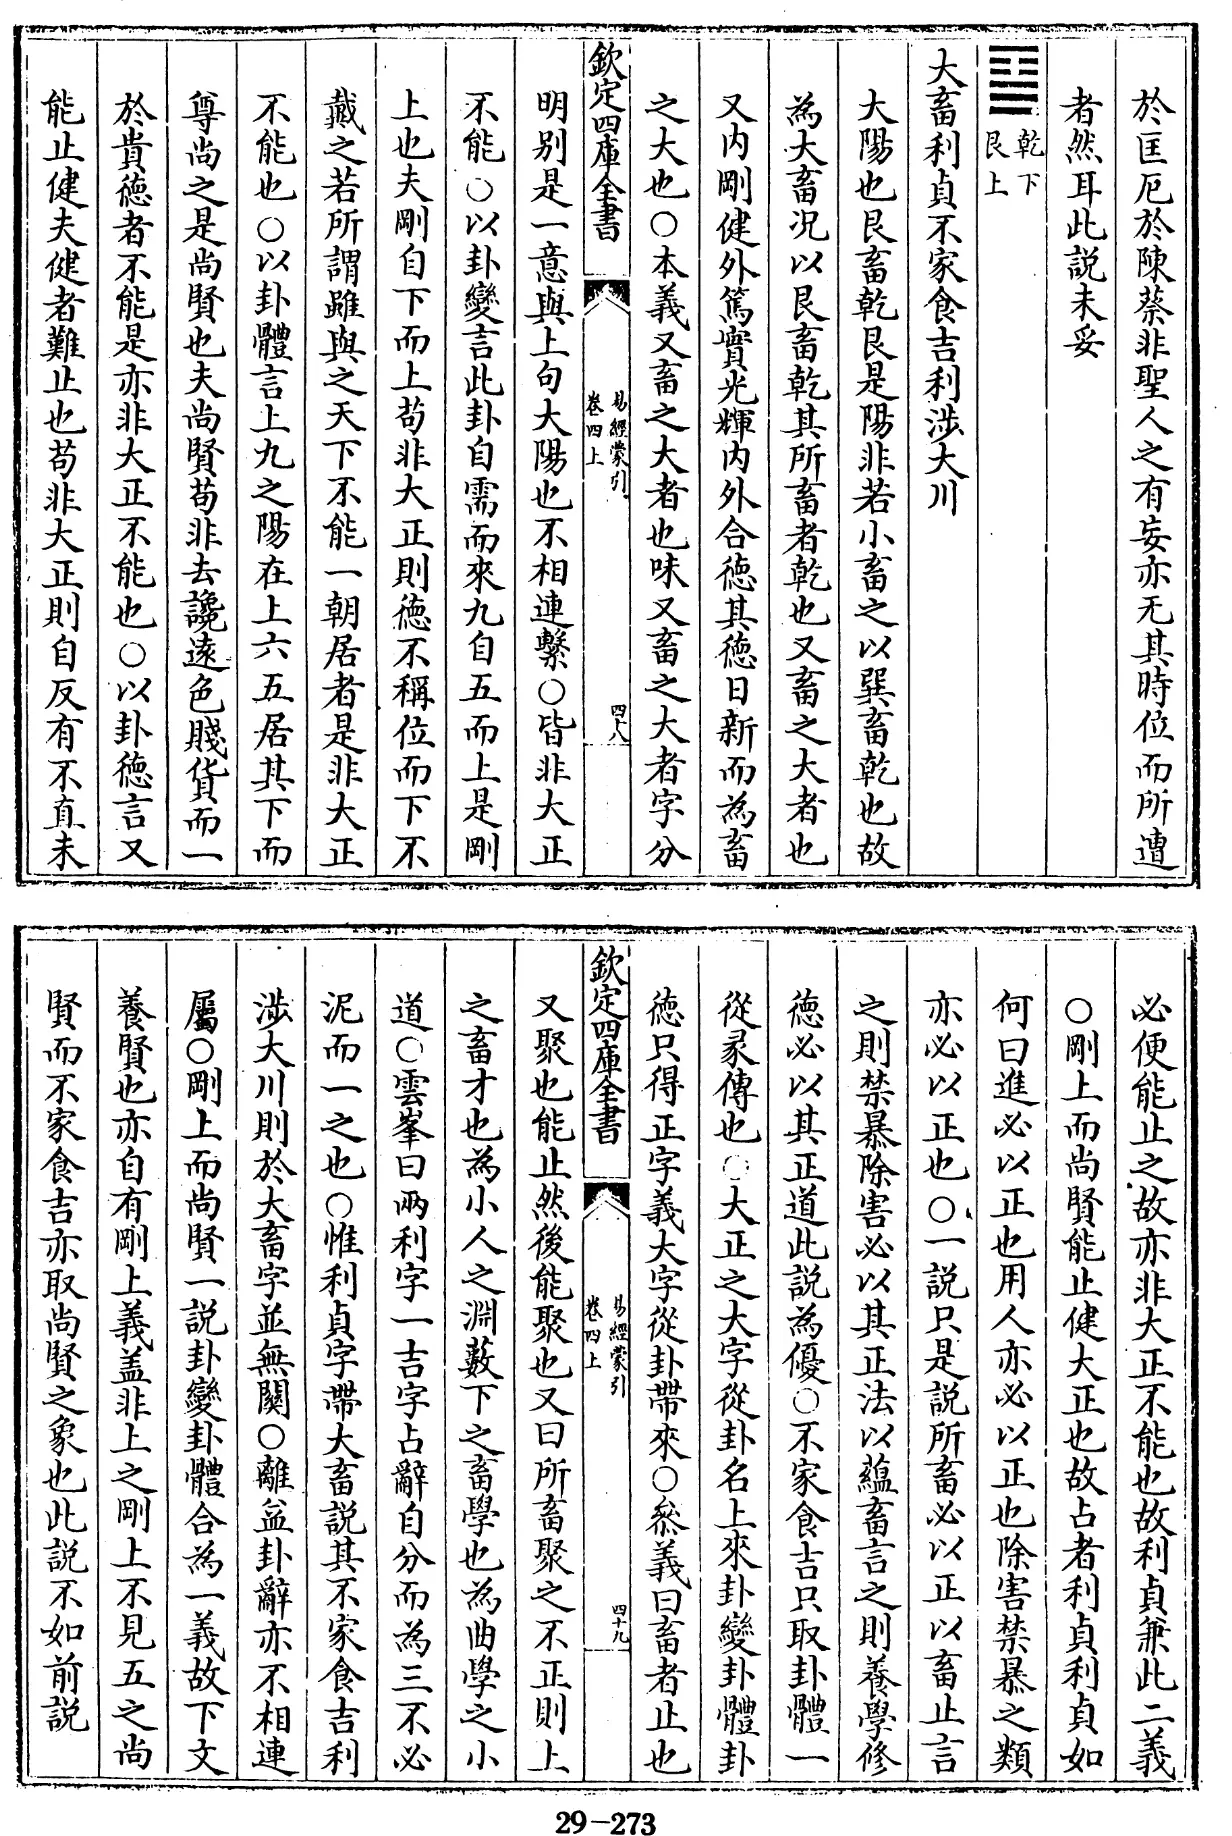 於匡厄於陳蔡非聖人之有妄亦无其時位而所遭
者然耳此説未妥
乾下
艮上
大畜利貞不家食吉利涉大川
大陽也艮畜乾艮是陽非若小畜之以巽畜乾也故
為大畜況以艮畜乾其所畜者乾也又畜之大者也
又内剛健外篤實光輝内外合徳其徳日新而為畜
之大也○本義又畜之大者也味又畜之大者字分
欽定四庫全書
易經蒙引
卷四上
四八
明别是一意與上句大陽也不相連繫○皆非大正
不能○以卦變言此卦自需而來九自五而上是剛
上也夫剛自下而上苟非大正則徳不稱位而下不
戴之若所謂雖與之天下不能一朝居者是非大正
不能也○以卦體言上九之陽在上六五居其下而
尊尚之是尚賢也夫尚賢苟非去讒遠色賤貨而一
於貴徳者不能是亦非大正不能也○以卦徳言又
能止健夫健者難止也苟非大正則自反有不直未
必便能止之故亦非大正不能也故利貞兼此二義
○剛上而尚賢能止健大正也故占者利貞利貞如
何曰進必以正也用人亦必以正也除害禁暴之類
亦必以正也○一説只是説所畜必以正以畜止言
之則禁暴除害必以其正法以蘊畜言之則養學修
徳必以其正道此説為優○不家食吉只取卦體一
從彖傳也○大正之大字從卦名上來卦變卦體卦
徳只得正字義大字從卦帶來○叅義曰畜者止也
欽定四庫全書
易經蒙引
卷四上
四十九
又聚也能止然後能聚也又曰所畜聚之不正則上
之畜才也為小人之淵藪下之畜學也為曲學之小
道○雲峯曰兩利字一吉字占辭自分而為三不必
泥而一之也○惟利貞字帶大畜説其不家食吉利
涉大川則於大畜字並無關○離益卦辭亦不相連
屬○剛上而尚賢一説卦變卦體合為一義故下文
養賢也亦自有剛上義盖非上之剛上不見五之尚
賢而不家食吉亦取尚賢之象也此説不如前説
29-273